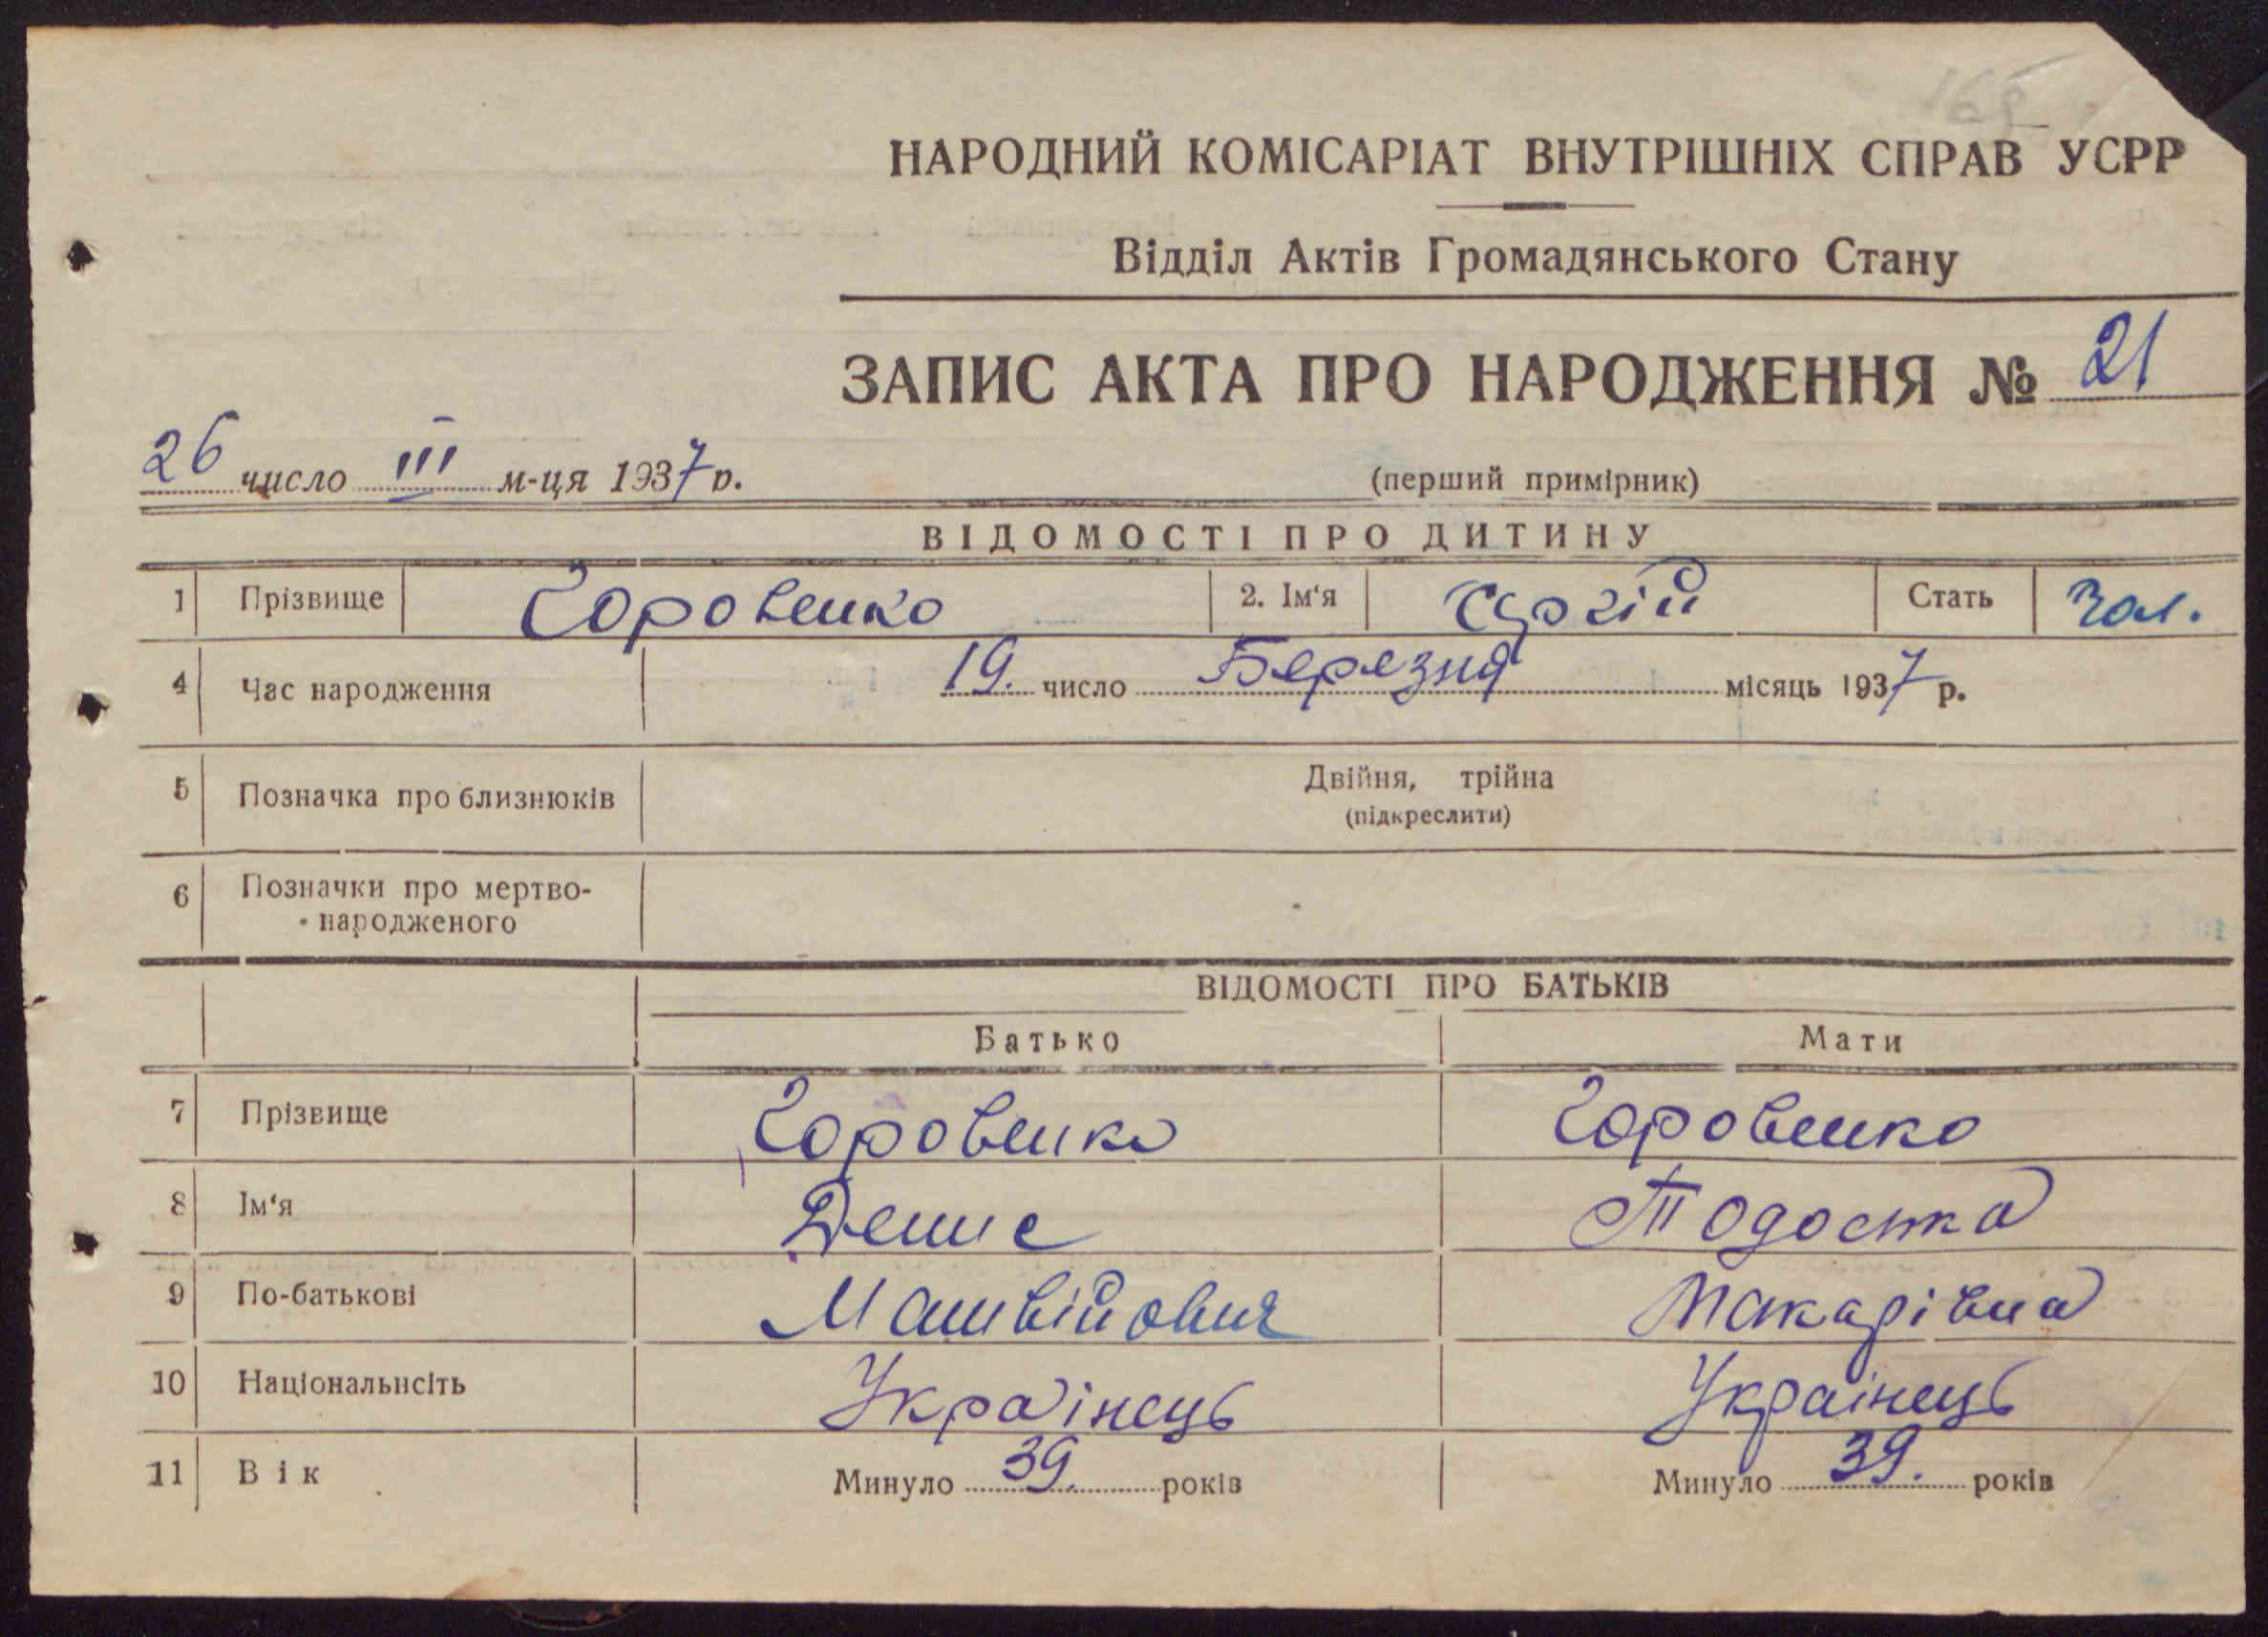 НАРОДНИЙ КОМІСАРІАТ ВНУТРІШНІХ СПРАВ УСРР
Відділ Актів Громадянського Стану
ЗАПИС АКТА ПРО НАРОДЖЕННЯ № 21
26 число III м-ця 1937 р.
(перший примірник)
ВІДОМОСТІ ПРО ДИТИНУ
1 Прізвище Горовенко 2. Ім'я Сергій Стать Чол.
4 Час народження 19. число Березня місяць 1937 р.
5 Позначка про близнюків Двійня, трійна
(підкреслити)
6 Позначки про мертво-
народженого
ВІДОМОСТІ ПРО БАТЬКІВ
Батько Мати
7 Прізвище Горовенко Горовенко
8 Ім'я Денис Тодоска
9 По-батькові Матвійович Макарівна
10 Національнсіть Українець Українець
11 Вік Минуло 39. років Минуло 39. років